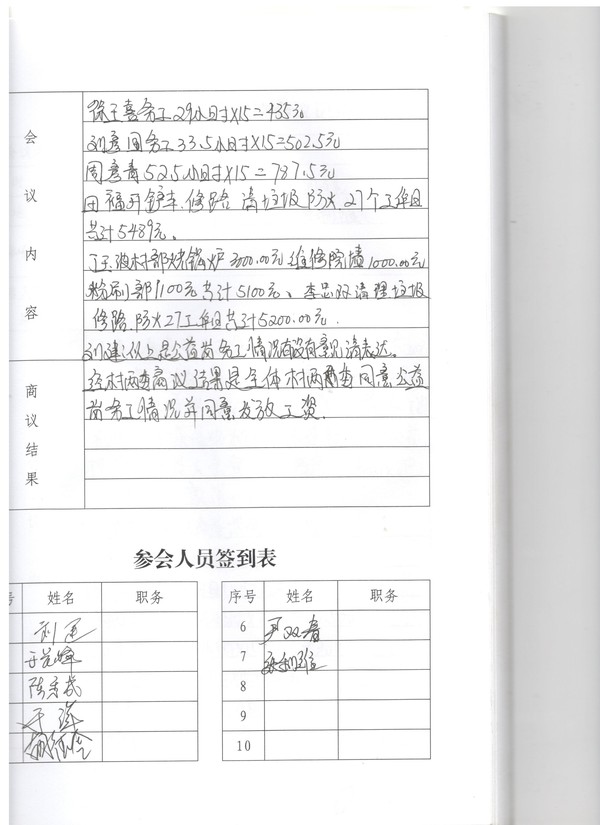 会议内容
徐王喜务工29小时X15=435元
刘彦国务工33.5小时X15=502.5元
周彦青52.5小时X15=787.5元
田福开铲车、修路、清垃圾、防火、27个工车日
共计5489元。
王波村部烧锅炉3000.00元维修院墙1000.00元
粉刷部1100元共计5100元、李忠双清理垃圾
修路、防火27工车日共计5200.00元.
刘建:以上是公益岗务工情况有没有意见请表达。
商议结果
经村两委商议结果是全体村两委同意公益
岗务工情况并同意发放工资.
参会人员签到表
号 姓名 职务 序号 姓名 职务
6
7
陈秀成 8
9
10